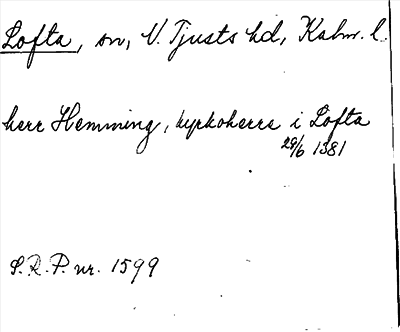 Lofta, sn, V. Tjusts hd, Kalm. l.
herr Hemming, kyrkoherre i Lofta
29/6 1381
S.R.P. nr. 1599